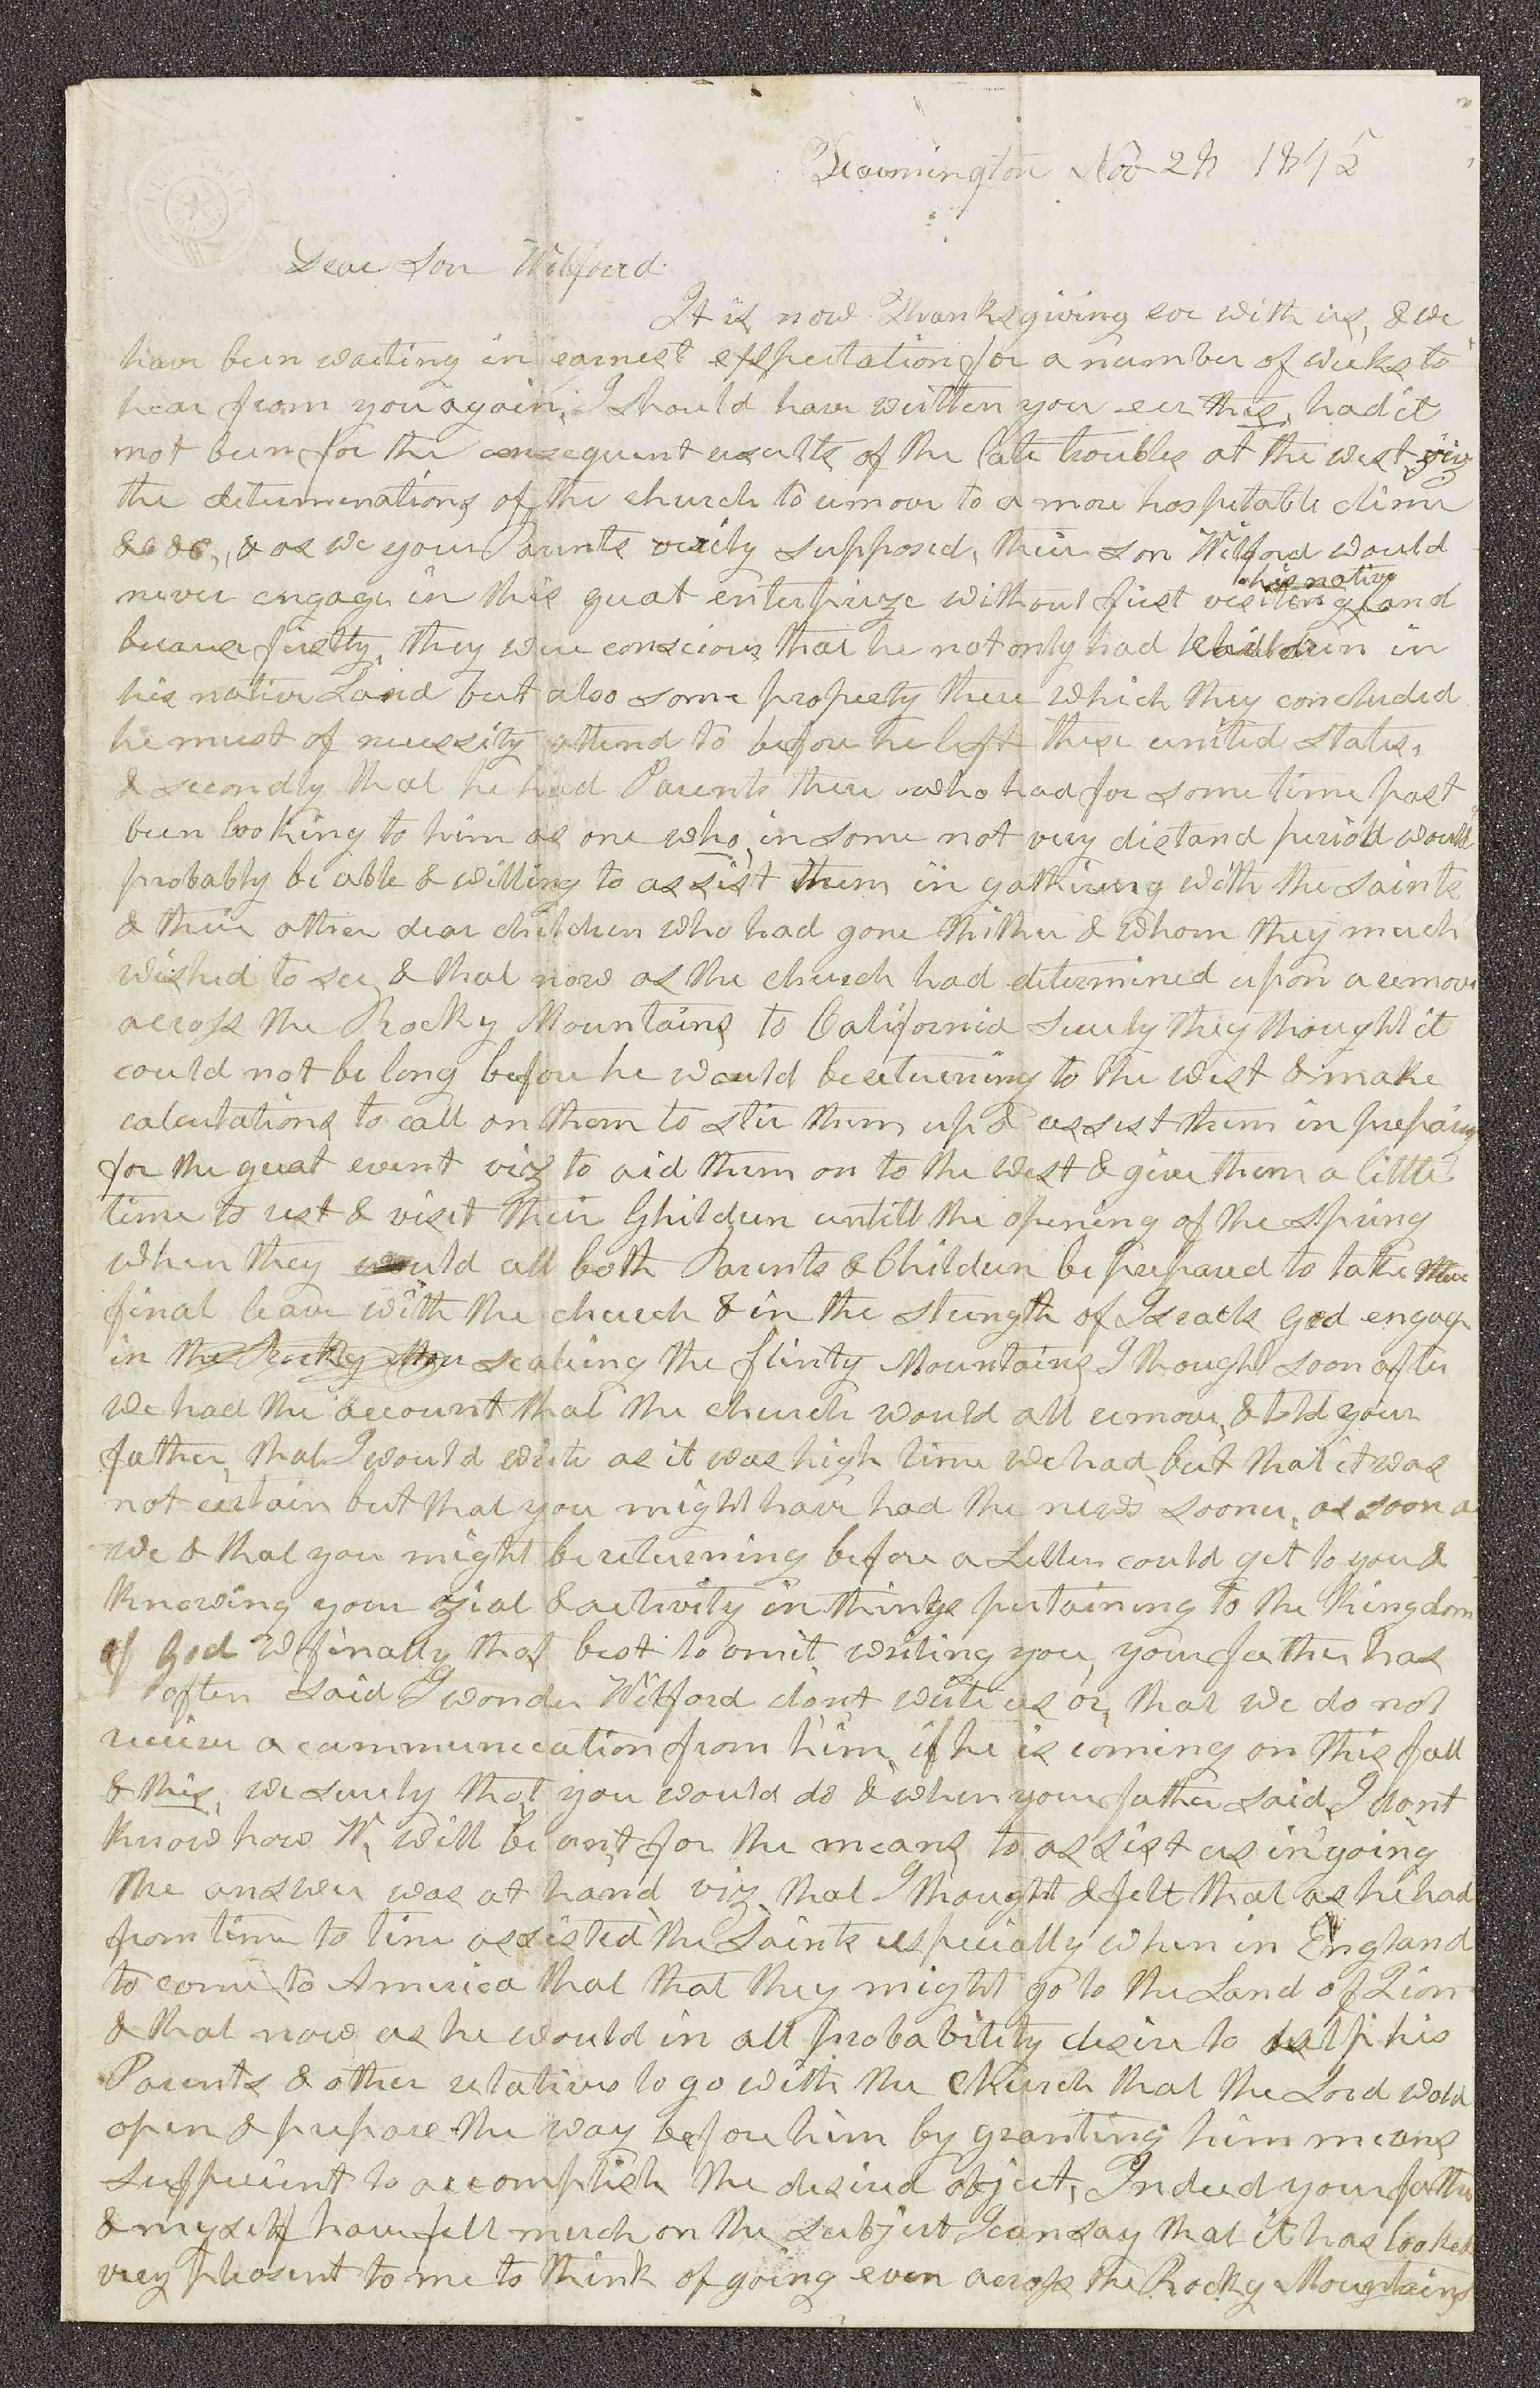 Farmington Nov 28 1845
Dear Son Wilford.
It is now Thanksgiving eve with us, & we
have been waiting in earnest expectation for a number of weeks to
hear from you again, I should have written you ere this, had it
not been for the consequent results of the late troubles at the west, viz
the determinations of the church to remove to a more hospitable clime
&c &c, & as we your Parents verily supposed, their son Wilford would
his native
never engage in this great enterprize without first visiting land
because firstly, they were conscious that he not only had children in
his native Land but also some property there which they concluded
he must of necessity attend to before he left these united states,
& secondly that he had Parents there who had for some time past
been looking to him as one who, in some not very distand period would
probably be able & willing to assist them in gathering with the saints
& their other dear children who had gone thither & whom they much
wished to see, & that now as the church had determined upon a remove
across the Rocky Mountains to California surely they thought it
could not be long before he would be returning to the west & make
calculations to call on them to stir them up & assist them in preparing
for the great event viz to aid them on to the west & give them a little
time to rest & visit their Children untill the opening of the spring
when they would all both Parents & Children be prepared to take their
final leave with the church & in the strength of Israels God engage
in the Rocky Mou scaling the flinty Mountains I thought soon after
we had the account that the church would all remove, & told your
father, that I would write as it was high time we had but that it was
not certain but that you might have had the news sooner, as soon as
we & that you might be returning before a Letter could get to you &
knowing your zial & activity in things pertaining to the kingdom
of God W finally thot best to omit writing you, your father has
often said I wonder Wilford dont write us or, that we do not
receive a communication from him, if he is coming on this fall
& this, we surely thot you would do & when your father said, I dont
know how W, will be ant for the means to assist us in going
the answer was at hand viz that I thought & felt that as he had
from time to time assisted the Saints especially when in England
to come to America that that they might go to the Land of Zion
& that now as he would in all probability desire to help his
Parents & other relatives to go with the church that the Lord wold
open & prepare the way before him by granting him means
sufficient to accomplish the desired object, Indeed your father
& myself have felt much on the subject I can say that it has looked
very pleasent to me to think of going even across the Rocky Mountains